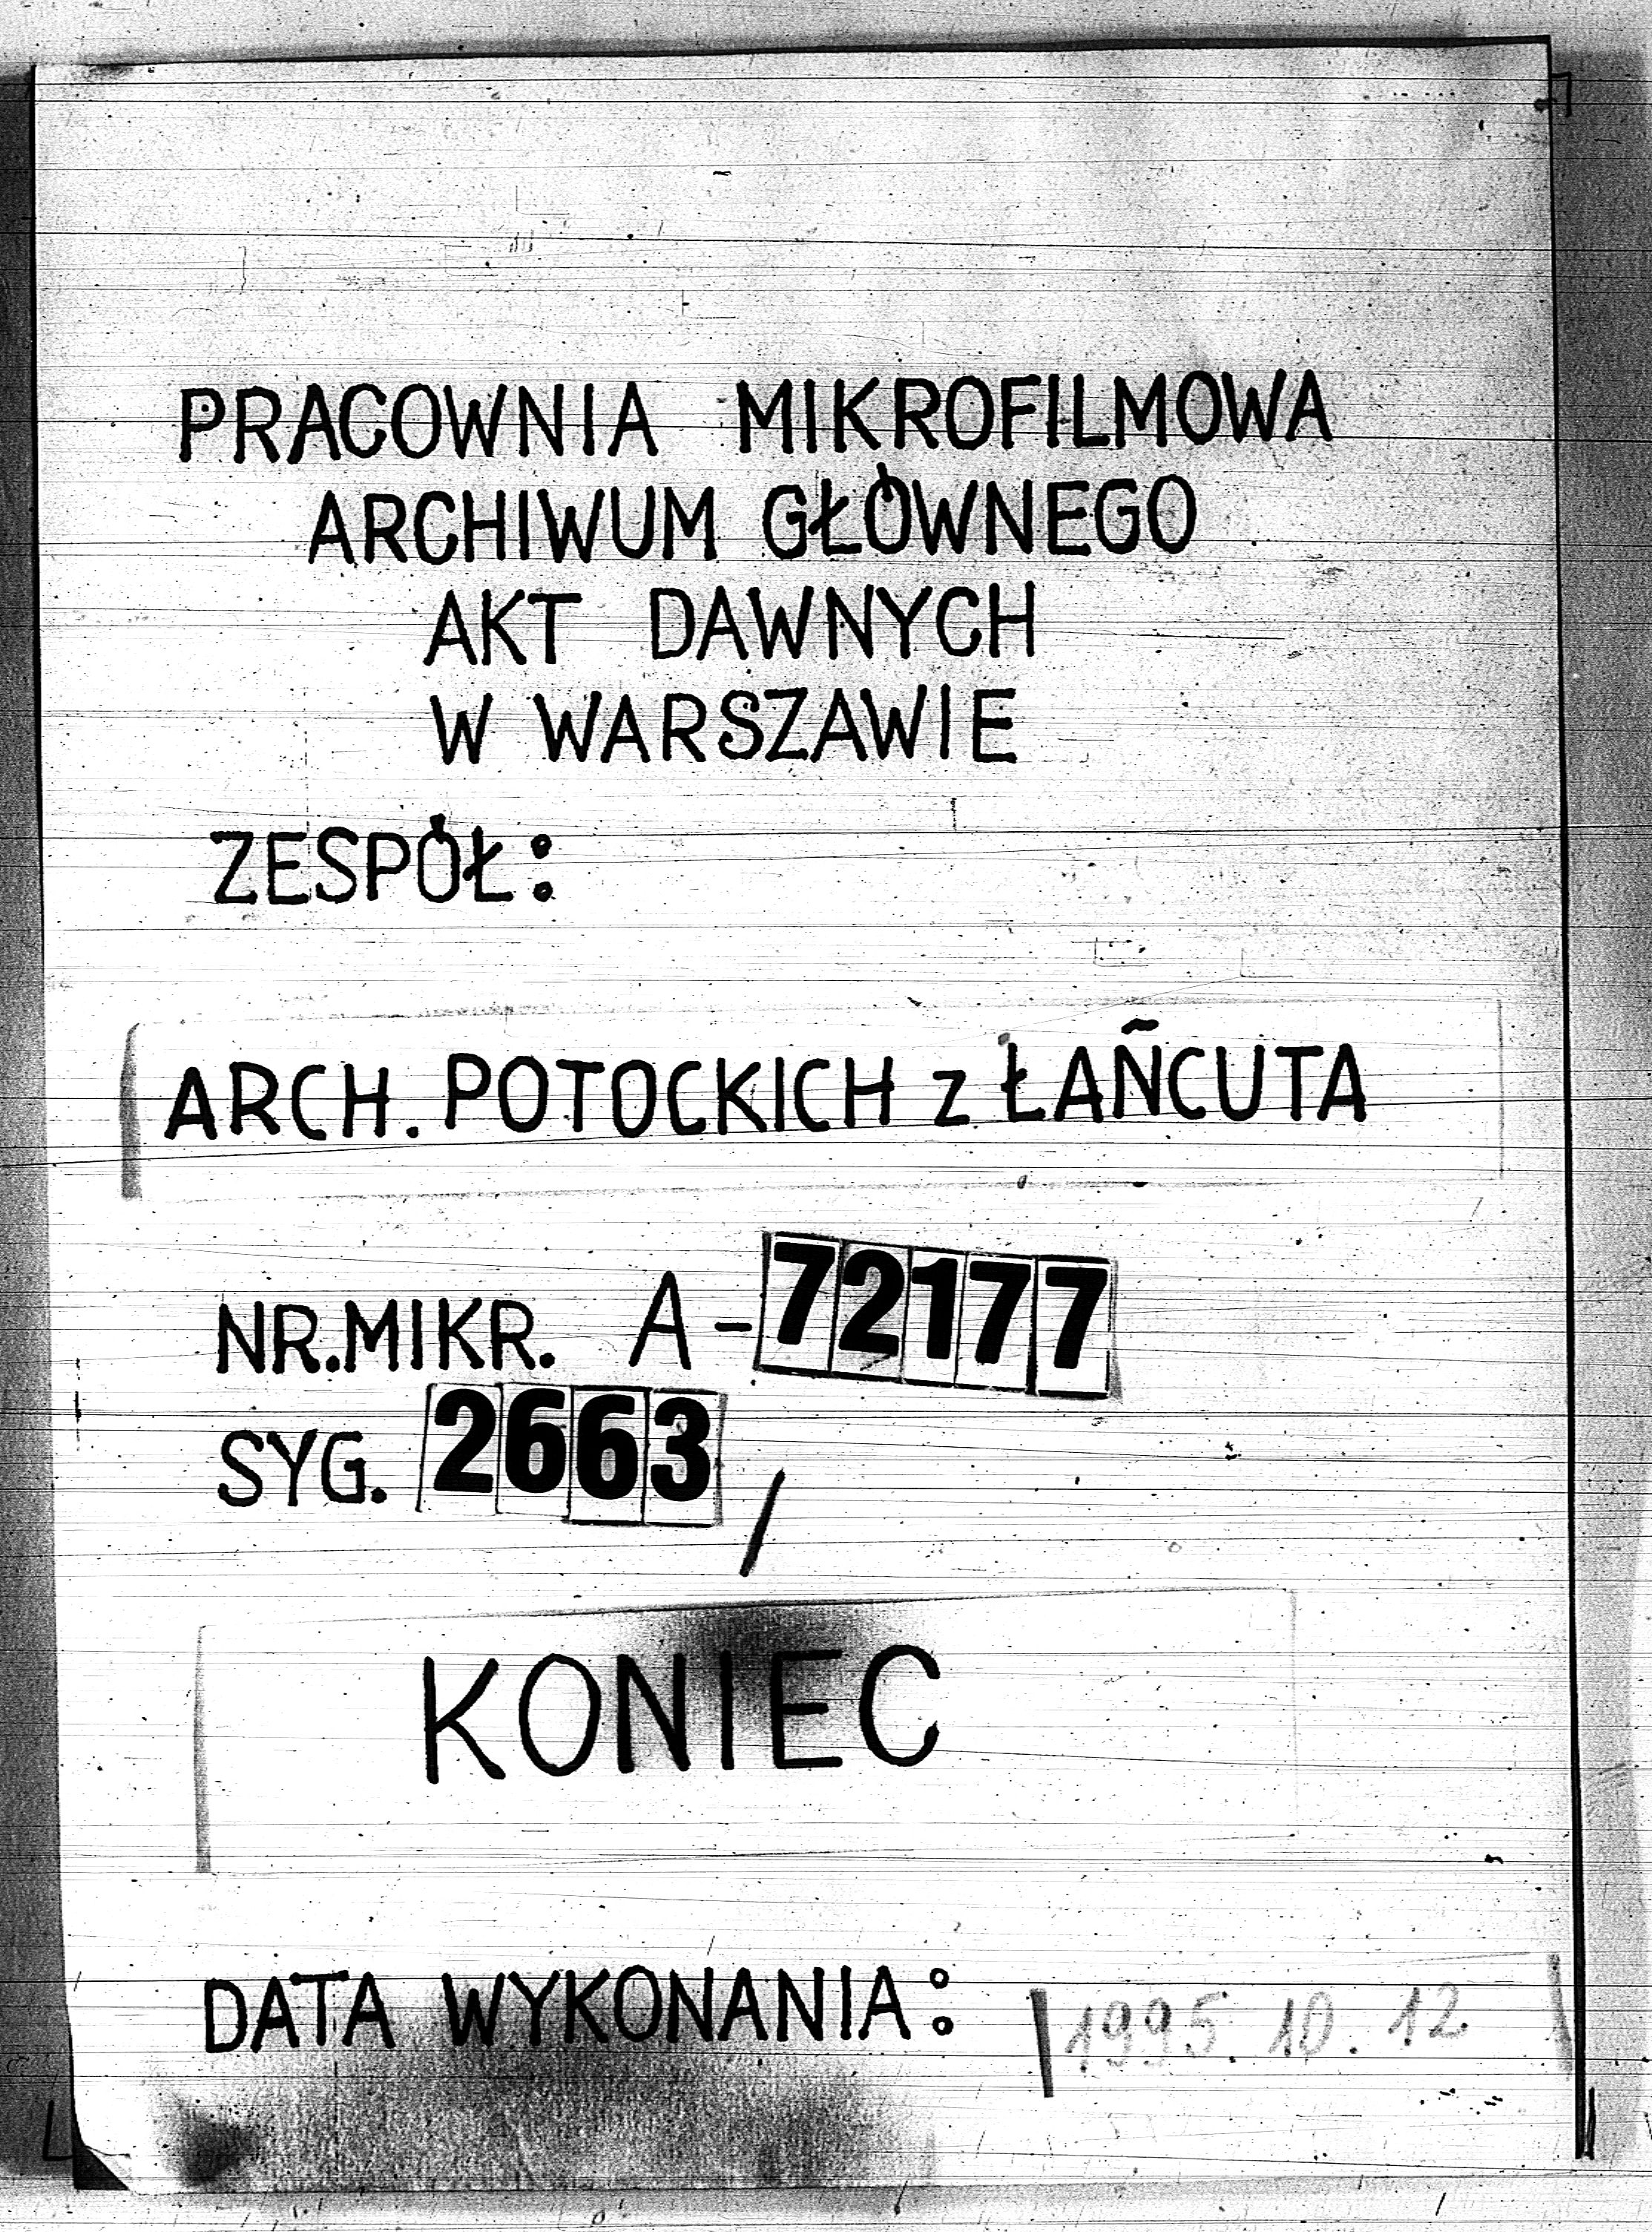 PRACOWNIA MIKROFILMOWA
ARCHIWUM GŁÓWNEGO
AKT DAWNYCH
W WARSZAWIE
ZESPÓŁ:
ARCH. POTOCKICH z ŁAŃCUTA
NR.MIKR. A-72177
SYG. 2663/
KONIEC
DATA WYKONANIA: 1995.10.12